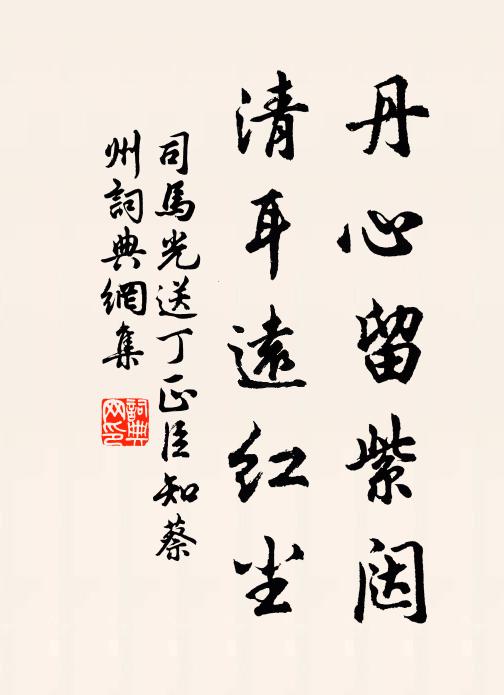 丹心留紫闼
清耳远红尘
司馬光送丁正臣知蔡
州詞典網集
詞典
网印